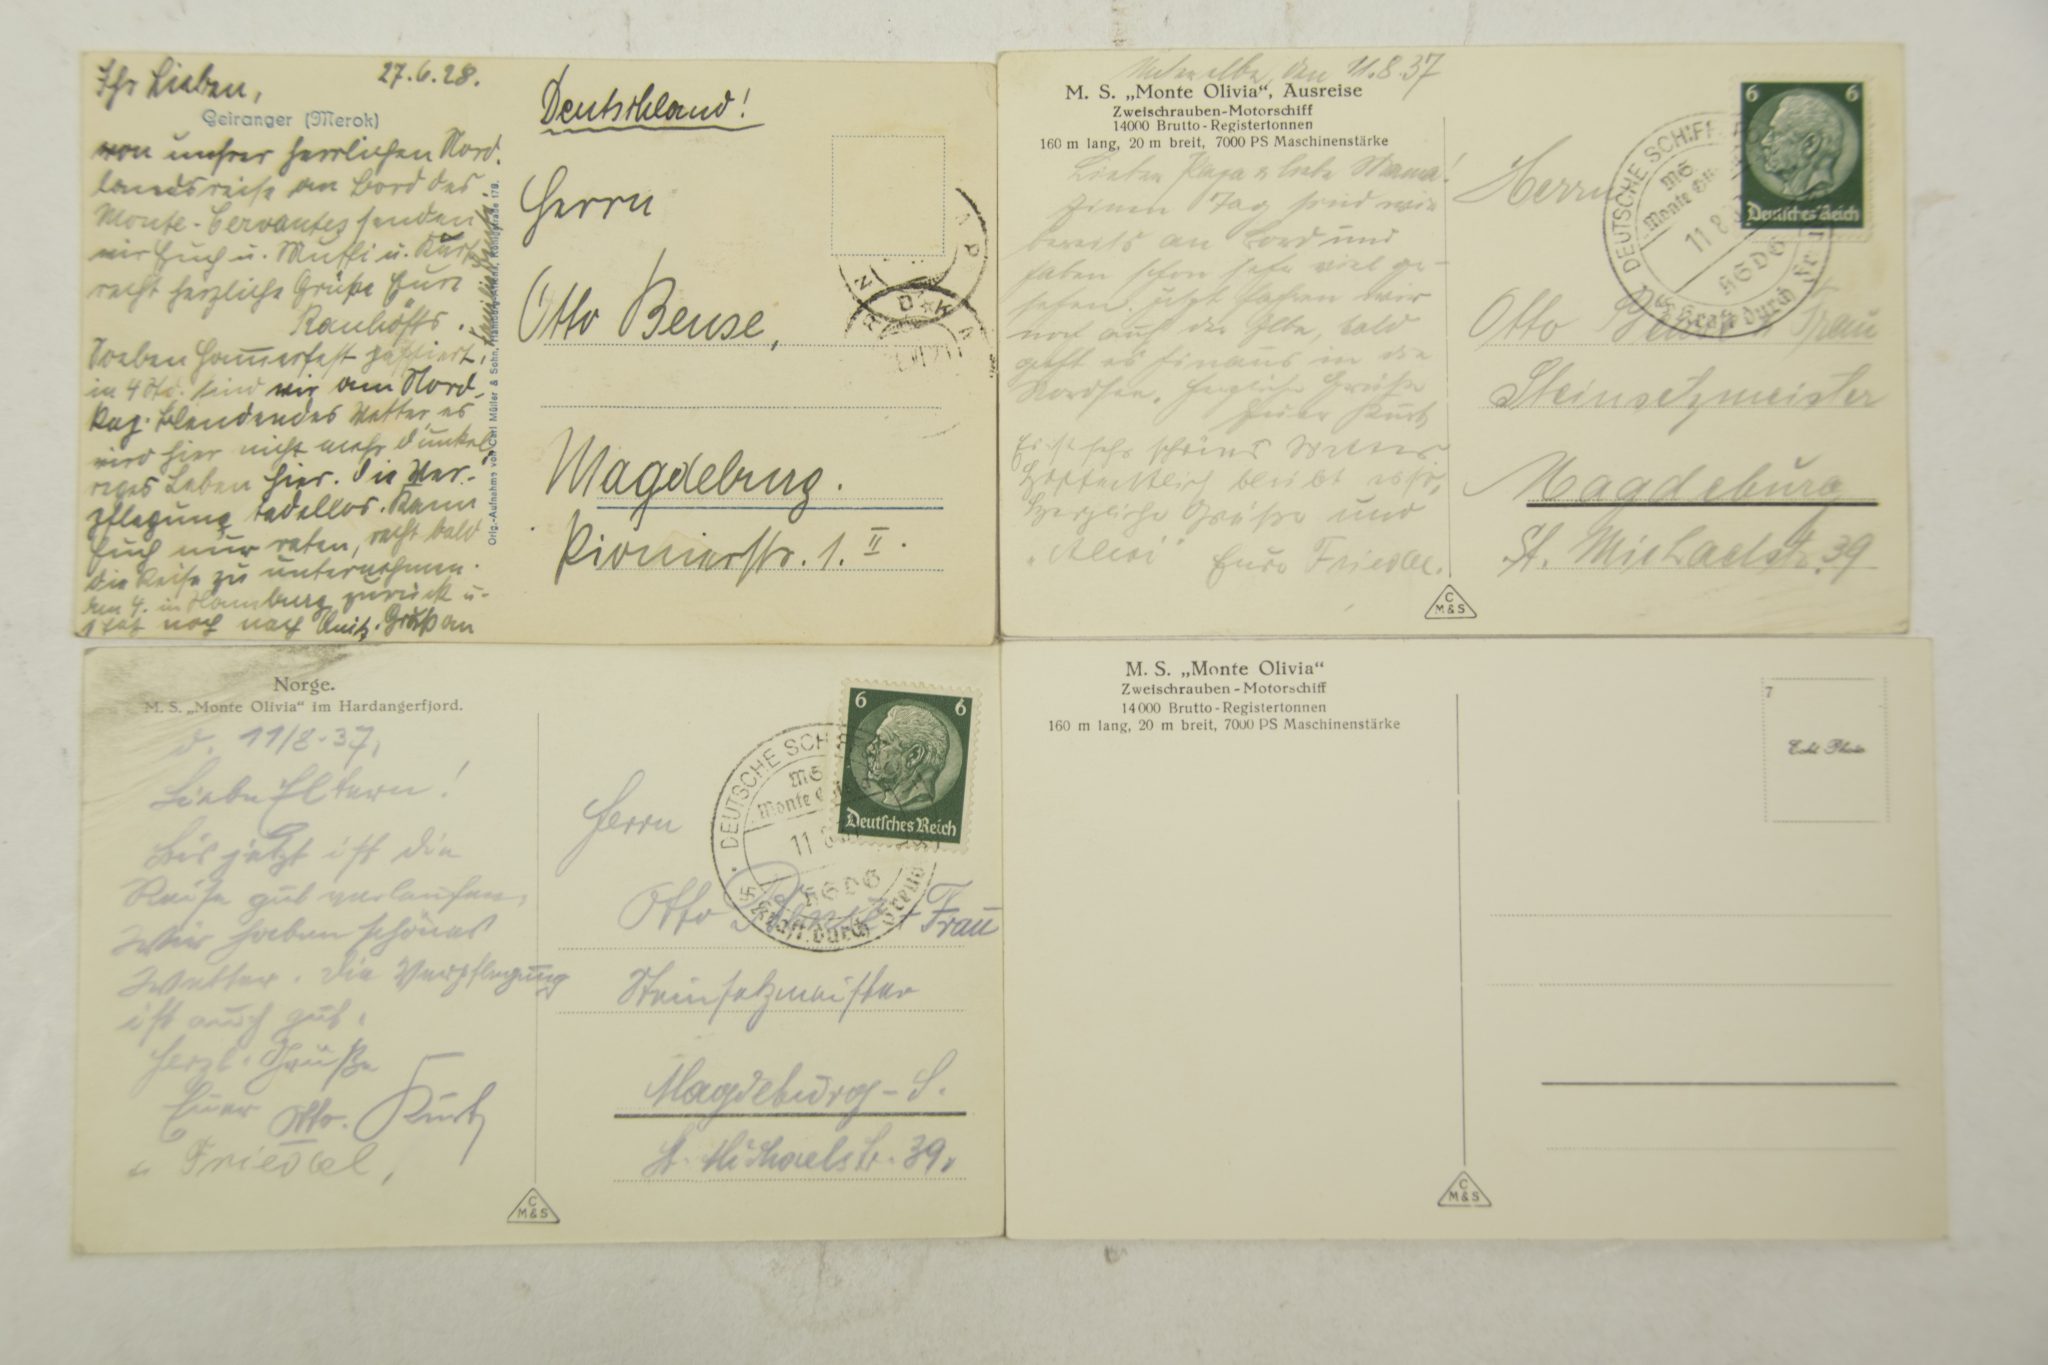 Ihr Lieben, 27.6.28.
Geiranger (Merok)
von unsrer herrlichen Nord-
landsreise an Bord des
Monte-Cervantes senden
wir Euch u. Mutti u. Kurt
recht herzliche Grüße Eure
Ranhöffts.
Soeben Hammerfest passiert,
in 4 Std. sind wir am Nord-
kap. Blendendes Wetter, es
wird hier nicht mehr dunkel,
Leben hier. Die Ver-
pflegung tadellos. Kann
Euch nur raten, recht bald
die Reise zu unternehmen.
Am 4. in Hamburg zurück u.
noch nach Gruß an
Orig.-Aufnahme von Carl Müller & Sohn, Hamburg-Altona, Königstraße 179.
Deutschland!
Herrn
Otto Bense,
Magdeburg.
Pionierstr. 1. II.
Unterelbe, den 11.8.37
M. S. „Monte Olivia“, Ausreise
Zweischrauben-Motorschiff
14000 Brutto-Registertonnen
160 m lang, 20 m breit, 7000 PS Maschinenstärke
Lieber Papa & liebe Mama!
Einen Tag sind wir
bereits an Bord und
haben schon sehr viel ge-
sehen. Jetzt fahren wir
noch auf der Elbe, bald
geht es hinaus in die
Nordsee. Herzliche Grüße
Euer Kurt
Es ist sehr schönes Wetter
Hoffentlich bleibt es so,
Herzliche Grüße und
„Ahoi“ Eure Friedel.
DEUTSCHE SCHIFF
MS
Monte Oli
11 8 3
KGDG
Kraft durch Fr
6 6
Deutsches Reich
Herrn
Otto Bense + Frau
Steinsetzmeister
Magdeburg
St. Michaelstr. 39
C
M&S
Norge.
M. S. „Monte Olivia“ im Hardangerfjord.
d. 11/8.37,
Liebe Eltern!
Bis jetzt ist die
Reise gut verlaufen,
Wir haben schönes
Wetter. Die Verpflegung
ist auch gut.
Herzl. Grüße
Euer Otto. Kurt
u Friedel,
DEUTSCHE SCH
MS
Monte
11 8
KGDG
Kraft durch Freud
6 6
Deutsches Reich
Herrn
Otto Bense + Frau
Steinsetzmeister
Magdeburg-S.
St. Michaelstr. 39.
C
M&S
M. S. „Monte Olivia“
Zweischrauben-Motorschiff
14000 Brutto-Registertonnen
160 m lang, 20 m breit, 7000 PS Maschinenstärke
7
Echt Photo
C
M&S